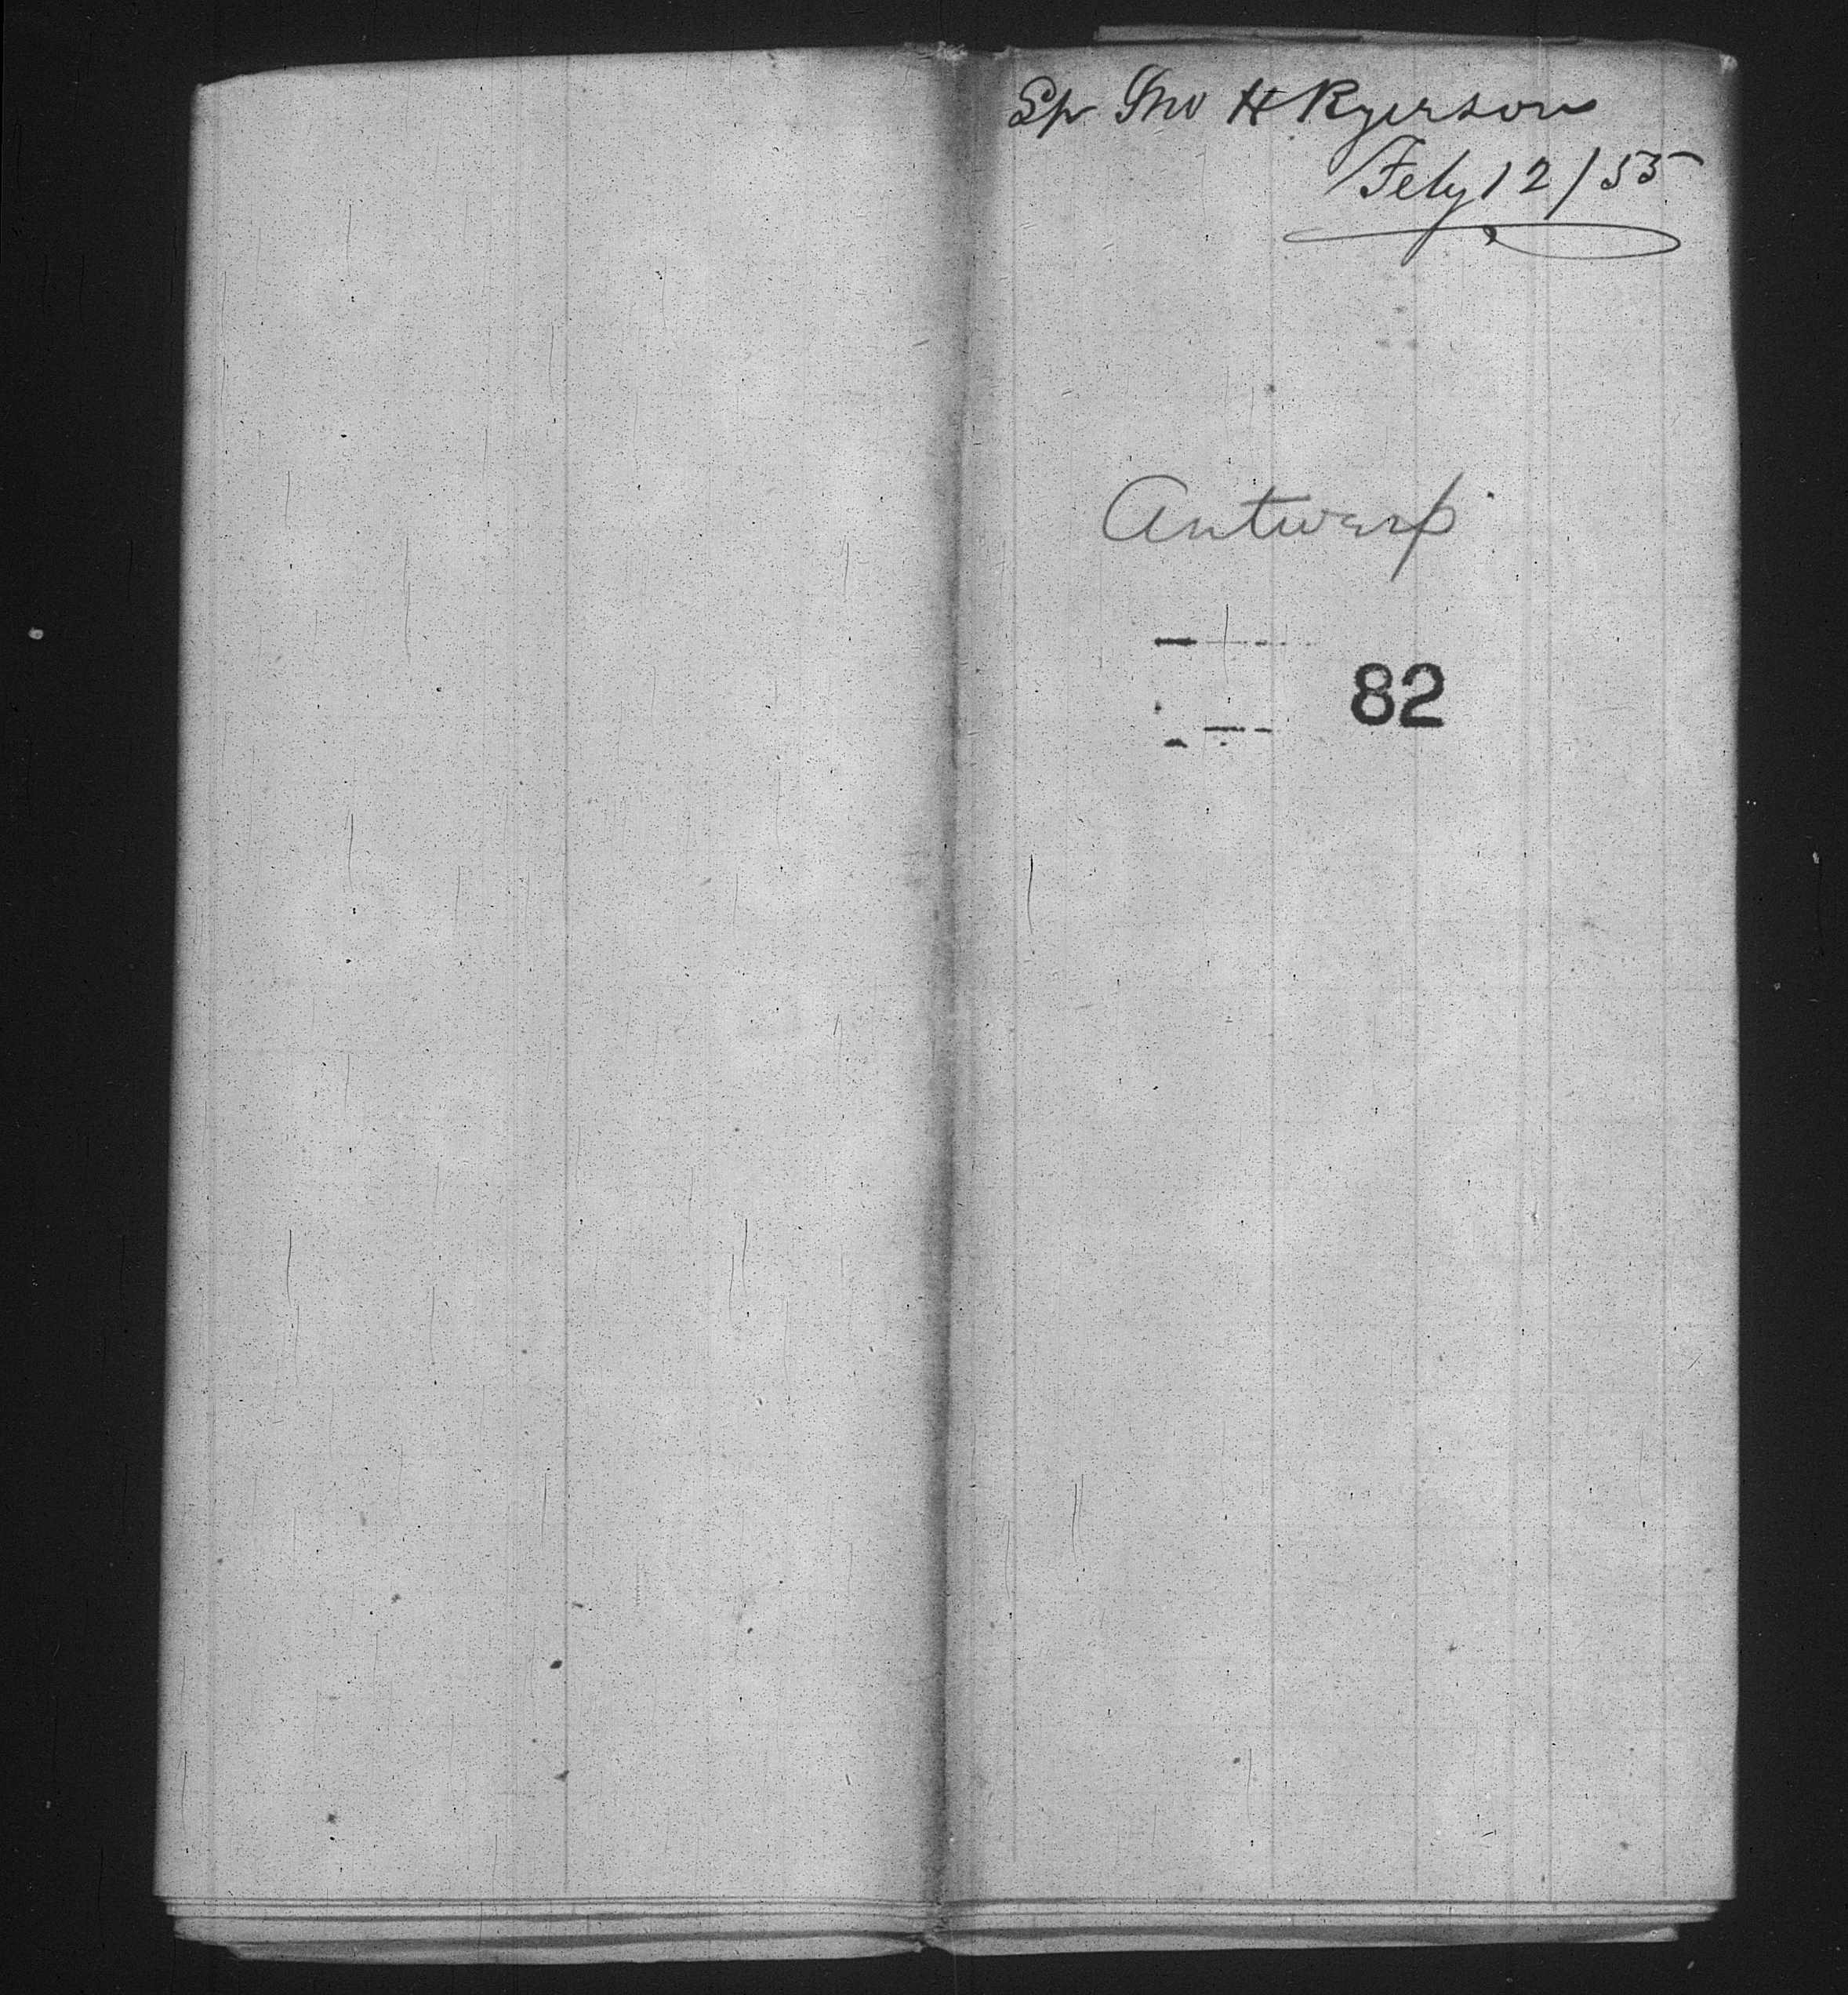 Sp Jno H Ryerson
Feby 12/55
Antwerp
82